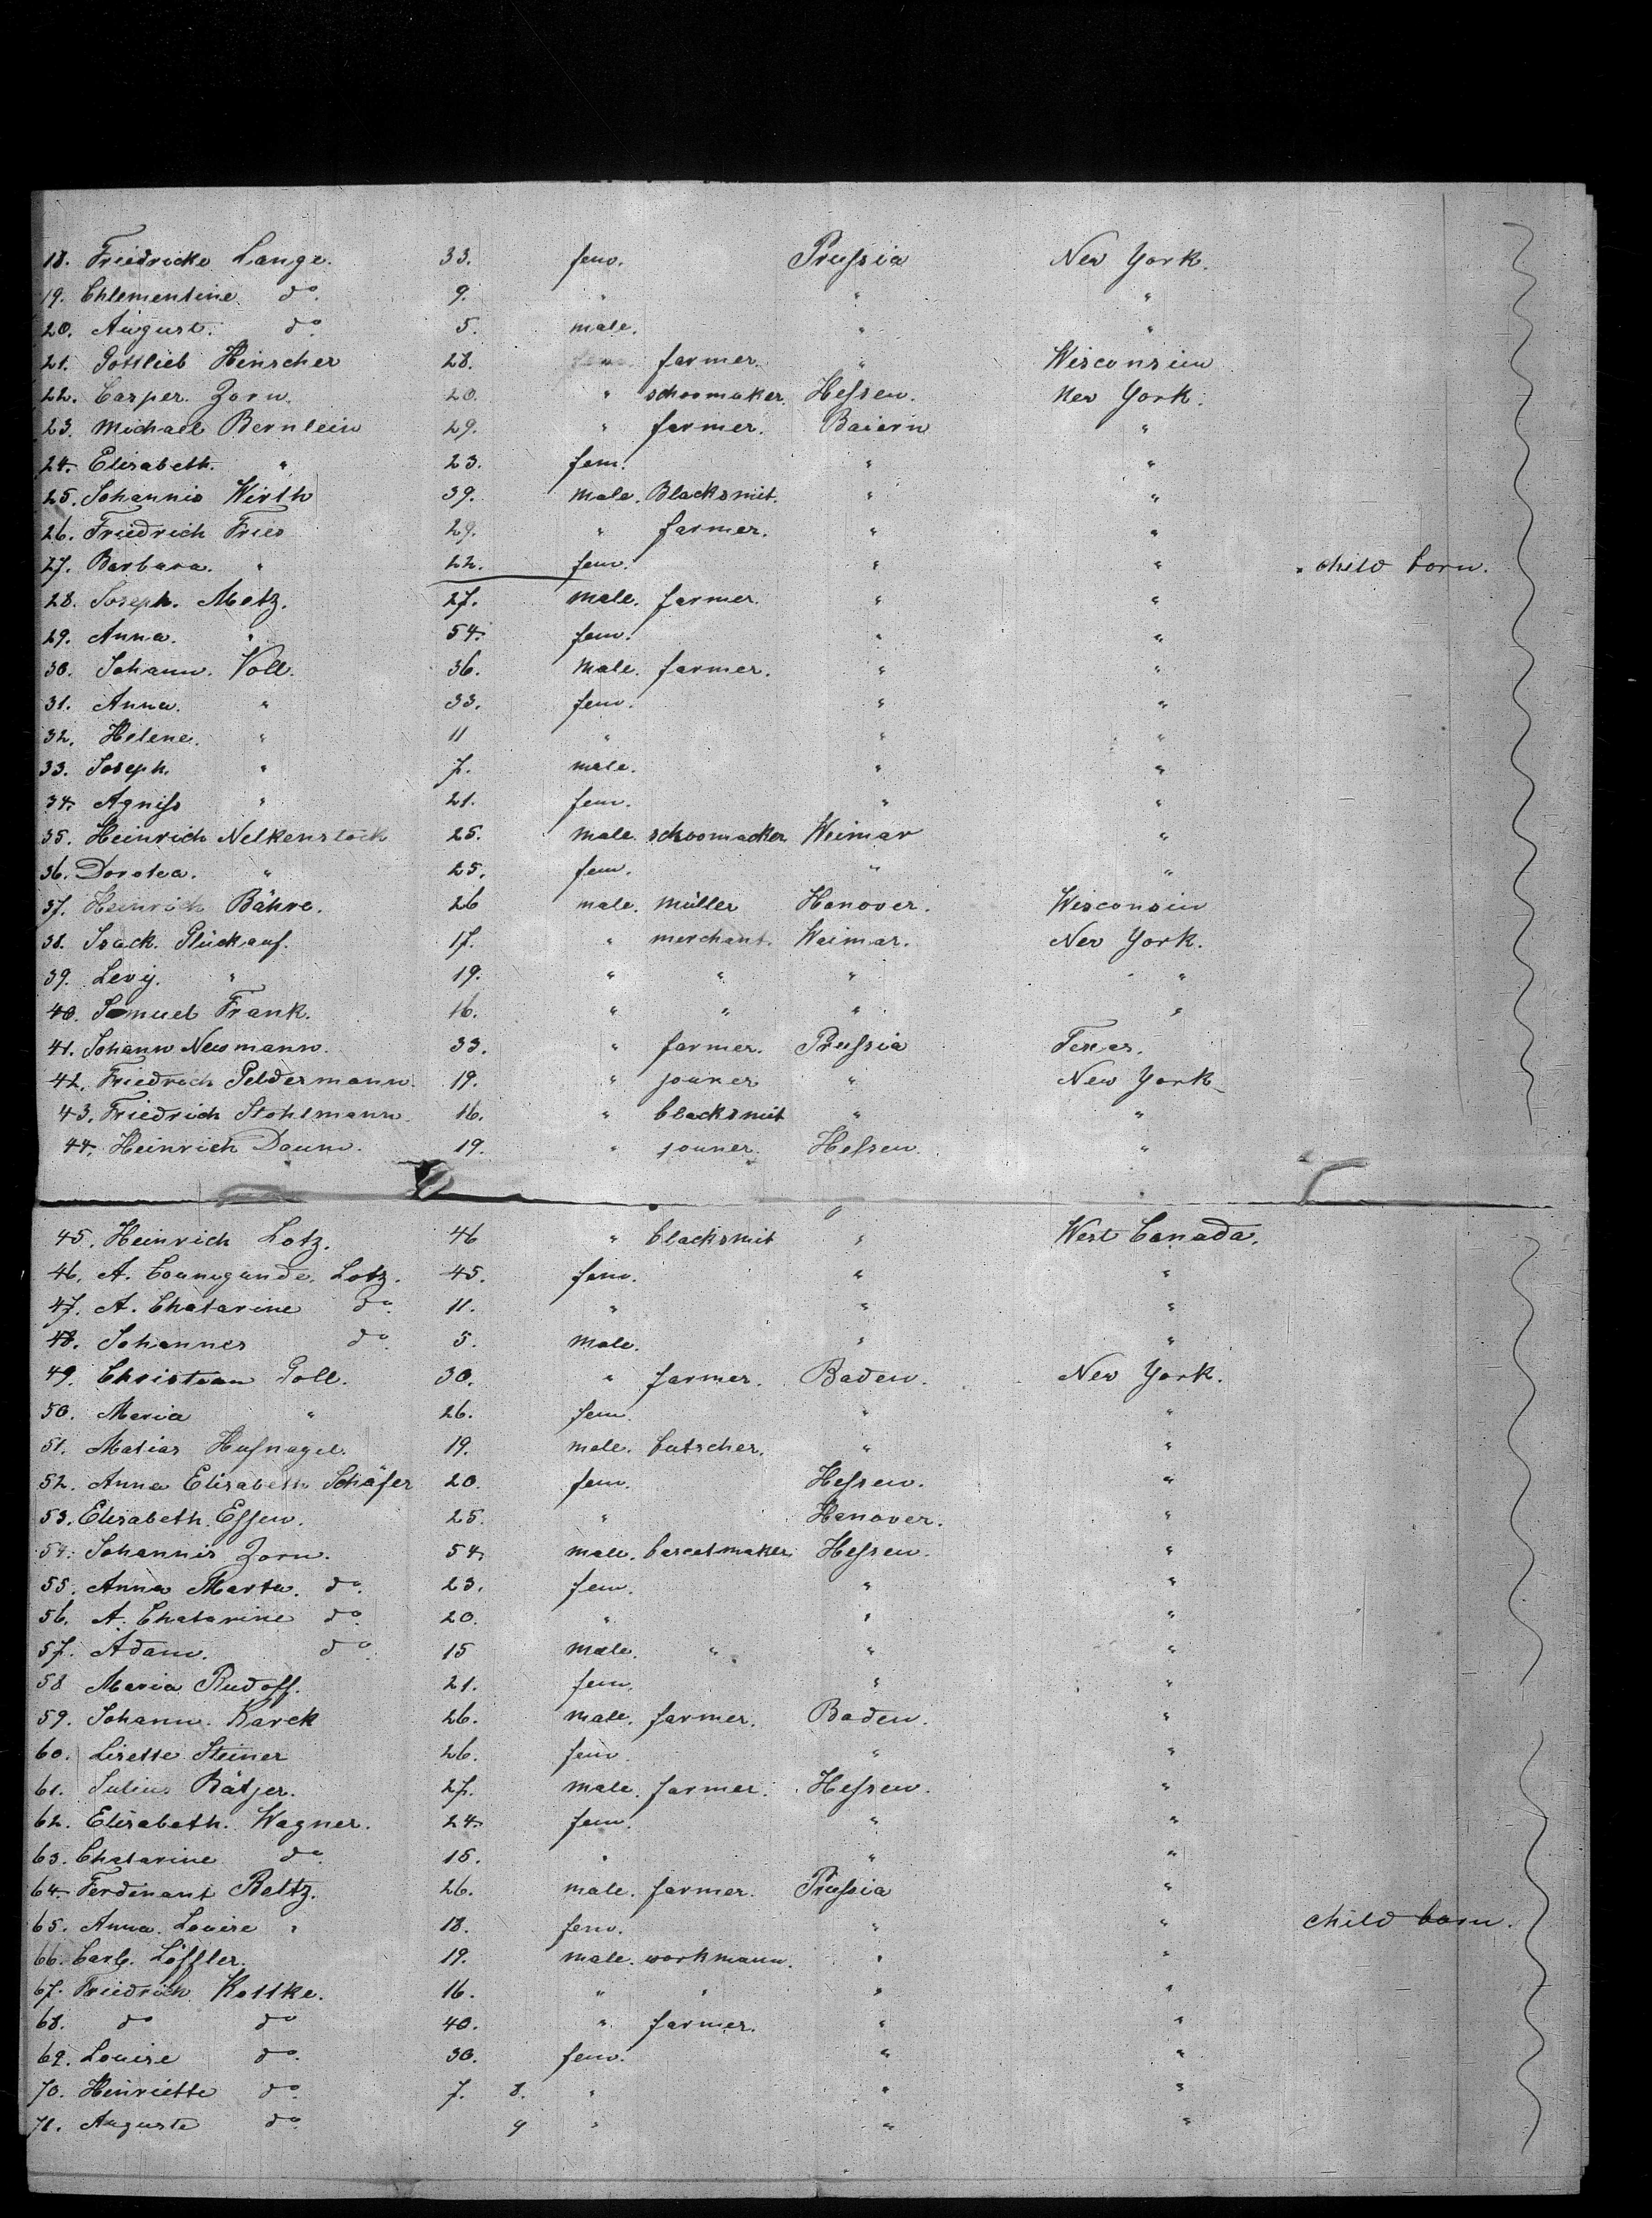 18. Friedricke Lange. 33. fem. Prussia New York.
19. Chlementine do. 9. " " "
20. August. do 5. male. " "
21. Gottlieb Hinscher 28. " farmer. " Wisconsin
22. Casper. Zorn. 20. " schoomaker. Hessen. New York.
23. Michael Bernlein 29. " farmer. Baiern "
24. Elisabeth. " 23. fem. " "
25. Johannis Wirth 39. male. Blacksmit. " "
26. Friedrich Fries 29. " farmer. " "
27. Barbara. " 22. fem. " " " child born.
28. Joseph. Metz. 27. male. farmer. " "
29. Anna. " 54. fem. " "
30. Johann. Voll. 36. male. farmer. " "
31. Anna. " 33. fem. " "
32. Helene. " 11 " " "
33. Joseph. " 7. male. " "
34. Agniss " 21. fem. " "
35. Heinrich Nelkenstock 25. male. schoomacker Weimar "
36. Dorotea. " 25. fem. " "
37. Heinrich Bähre. 26 male. müller Hanover. Wisconsin
38. Isack. Glückauf. 17. " merchant. Waimar. New York.
39. Levy. " 19. " " " "
40. Samuel Frank. 16. " " " "
41. Johann Newmann. 33. " farmer. Prussia Texas.
42. Friedrich Geldermann. 19. " jouner " New York
43. Friedrich Stohlmann. 16. " blacksmit " "
44. Heinrich Daum. 19. " jouner. Hessen. "
45. Heinrich Lotz. 46 " blacksmit " West Canada.
46. A. Counugunde. Lotz. 45. fem. " "
47. A. Chatarine do. 11. " " "
48. Johannes do. 5. male. " "
49. Christian Goll. 30. " farmer. Baden. New York.
50. Maria " 26. fem. " "
51. Matias Hufnagel. 19. male. butscher. " "
52. Anna Elisabeth Schäfer 20. fem. Hessen. "
53. Elisabeth. Essen. 25. " Hanover. "
54. Johannis Zorn. 54. male. bascetmaker. Hessen. "
55. Anna Marta. do. 23. fem. " "
56. A. Chatarine do. 20. " " "
57. Adam. do. 15 male. " " "
58 Maria Rudoff. 21. fem. " "
59. Johann. Karck 26. male. farmer. Baden. "
60. Lisette Steiner 26. fem. " "
61. Julius Rätjer. 27. male. farmer. Hessen. "
62. Elisabeth. Wagner. 24. fem. " "
63. Chatarine do. 15. " " "
64. Ferdinant Beltz. 26. male. farmer. Prussia "
65. Anna. Louise " 18. fem. " " child born.
66. Carl. Löffler. 19. male. workmann. " "
67. Friedrich Kottke. 16. " " " "
68. do do 40. " farmer. " "
69. Louise do. 30. fem. " "
70. Henriette do. 7. 8. " " "
71. Auguste do. 9 " " "